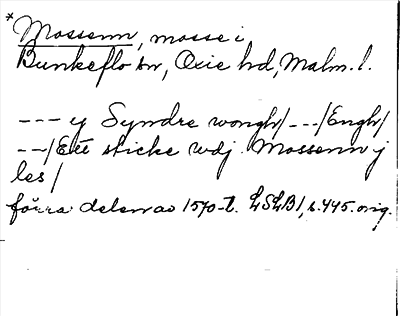 *Mossenn, mosse i
Bunkeflo sn, Oxie hd, Malm. l.
--- y Syndre wongh/ ---/Engh/
--/Ett sticke wdj Mossenn j
les/
förra delen av 1570-t. LSLB1, s. 445. orig.